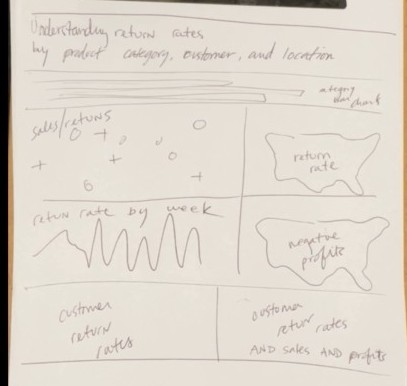 Understanding return rates
by product category, customer, and location
category
chart
sales/returns
return
rate
return rate by week
negative
profits
customer
return
rates
customer
return rates
AND sales AND profits